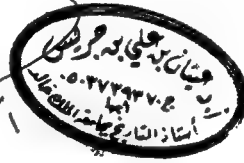 أ.د. غيثان بن علي بن جريس
ج. ٠٥٠٣٧٣٩٣٧٠
أبها
أستاذ التاريخ بجامعة الملك خالد